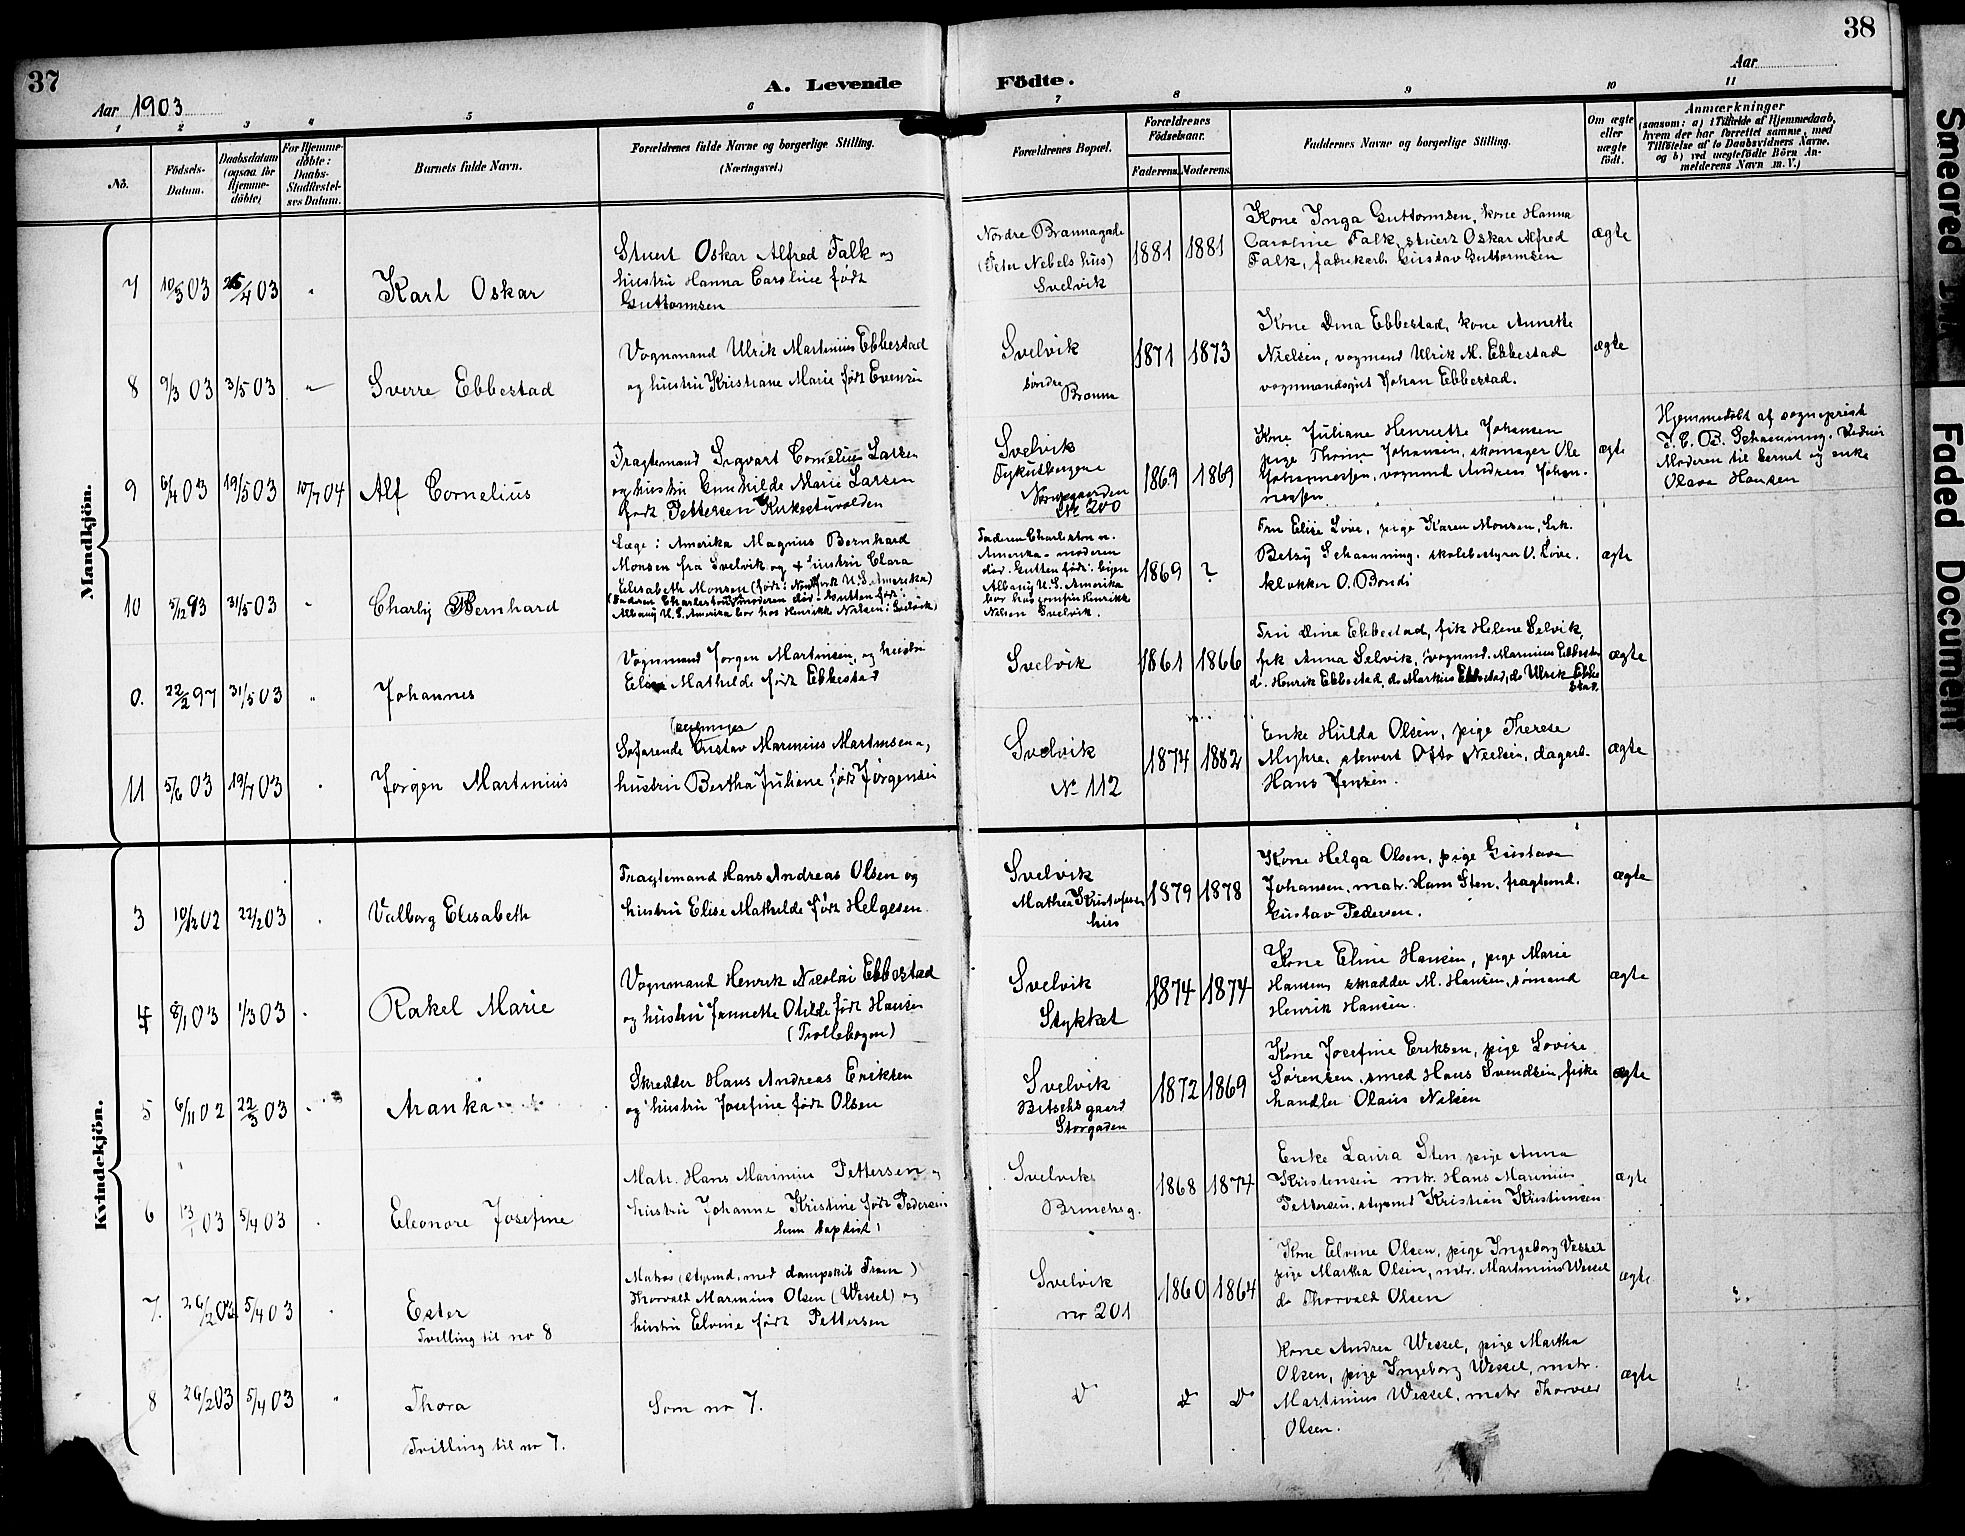 37
A. Levende
Födte.
38
Aar 1903
Aar
1 2 3 4 5 6 7 8 9 10 11
No.
Födsels-
Datum.
Daabsdatum
(ogsaa for
Hjemme-
döbte)
For Hjemme-
döbte:
Daabs-
Stadfæstel-
ses Datum.
Barnets fulde Navn.
Forældrenes fulde Navne og borgerlige Stilling.
(Næringsvei.)
Forældrenes Bopæl.
Forældrenes
Födselsaar.
Faderens.
Moderens.
Faddernes Navne og borgerlige Stilling.
Om ægte
eller
uægte
födt.
Anmærkninger
(saasom: a) i Tilfælde af Hjemmedaab,
hvem der har forrettet samme, med
Tilföielse af to Daabsvidners Navne.
og b) ved uægtefödte Börn An-
melderens Navn m.V.)
Mandkjön.
7
10/3 03
26/4 03
"
Karl Oskar
Stuert Oskar Alfred Falk og
hustru Hanna Caroline født
Guttormsen
Nordre Brannagade
(Peter Nebels hus)
Svelvik
1881
1881
Kone Inga Guttormsen, kone Hanna
Caroline Falk, stuert Oskar Alfred
Falk, fabrikarb. Gustav Guttormsen
ægte
8
9/3 03
3/5 03
"
Sverre Ebbestad
Vognmand Ulrik Martinius Ebbestad
og hustru Kristiane Marie født Evensen
Svelvik
søndre
Branna
1871
1873
Kone Dina Ebbestad, kone Annette
Nielsen, vogmand Ulrik M. Ebbestad
vognmandsgut Johan Ebbestad.
ægte
9
6/4 03
19/5 03
10/7 04
Alf Cornelius
Fragtemand Sigvart Cornelius Larsen
og hustru Gunhilde Marie Larsen
født Pettersen Kirkestuvolden
Svelvik
No 200
1869
1869
Kone Juliane Henriette Johansen
pige Thomine Johansen, skomager Ole
Johannessen, vognmd Andreas Johan-
nessen
ægte
Hjemmedøbt af sogneprest
J. C. B. Schanning. Vidner
Moderen til barnet og enke
Olava Hansen
10
5/12 93
31/5 03
"
Charly Bernhard
Læge i Amerika Magnus Bernhard
Monsen fra Svelvik og + hustru Clara
Elisabeth Monsen (født i New York U.S. Amerika)
(Faderen i Charlestown, moderen død. Gutten født i
Albany U.S. Amerika bor hos Henrikk Nielsen i Svelvik)
Faderen Charleston n.
Amerika - moderen
død. Gutten født i byen
Albany U.S. Amerika
bor hos Henrikk
Nielsen Svelvik.
1869
?
Fru Elise Love, pige Karen Monsen, frk.
Betsy Schanning. skolebestyrer V. Love.
klokker O. Bondi
ægte
0.
22/2 97
31/5 03
"
Johannes
Vognmand Jørgen Martinsen, og hustru
Elise Mathilde født Ebbestad
Svelvik
1861
1866
Fru Dina Ebbestad, frk Helene Selvik,
frk Anna Selvik, vognmd. Marinius Ebbestad
d. Henrik Ebbestad, do Markus Ebbestad, do Ulrik Ebbe
stad.
ægte
11
5/6 03
19/7 03
"
Jørgen Martinius
Søfarende Gustav Marinius Martinsen o,
hustru Bertha Juliane født Jørgensen
Svelvik
No 112
1874
1882
Enke Hulda Olsen, pige Therese
Myhre, stewert Otto Nielsen, dagarb.
Hans Jensen.
ægte
Kvindekjön.
3
10/12 02
22/2 03
"
Valborg Elisabeth
Fragtemand Hans Andreas Olsen og
hustru Elise Mathilde født Helgesen.
Svelvik
Mathea Kristofersen
hus
1879
1878
Kone Helga Olsen, pige Gustava
Johansen, matr. Hans Sten, fragtemd.
Gustav Pedersen.
ægte
4
8/1 03
1/3 03
"
Rakel Marie
Vognmand Henrik Nicolai Ebbestad
og hustru Jennette Otilde født Hansen
(Trollebogen)
Svelvik
Stykket
1874
1874
Kone Eline Hansen, pige Marie
Hansen, skrædder M. Hansen, sømand
Henrik Hansen.
ægte
5
6/11 02
22/3 03
"
Aranka
Skredder Hans Andreas Eriksen
og hustru Josefine født Olsen
Svelvik
Bitschsgaard
Storgaden
1872
1869
Kone Josefine Eriksen, pige Lovise
Sørensen, smed Hans Svendsen, fiske
handler Olaus Nielsen
ægte
6
13/1 03
5/4 03
"
Eleonore Josefine
Matr. Hans Marinius Pettersen og
hustru Johanne Kristine født Pedersen
hun baptist!
Svelvik
Brinchsg.
1868
1874
Enke Laura Sten pige Anna
Kristensen mtr. Hans Marinius
Pettersen, styrmd Kristian Kristensen
ægte
7.
26/2 03
5/4 03
"
Ester
Tvilling til no 8
Matros (styrmd. med dampskib Fram)
Thorvald Marinius Olsen (Wessel) og
hustru Elvine født Pettersen
Svelvik
no 201
1860
1864
Kone Elvine Olsen, pige Ingeborg Vessel
pige Martha Olsen, mtr. Martinius Wessel
do Thorvald Olsen
ægte
8
26/2 03
5/4 03
"
Thora
Tvilling til no 7.
Som no 7.
Kone Andrea Wessel, pige Martha
Olsen, pige Ingeborg Wessel, matr.
Martinius Wessel, matr. Thorvald
Olsen.
ægte
Smeared
Faded Document